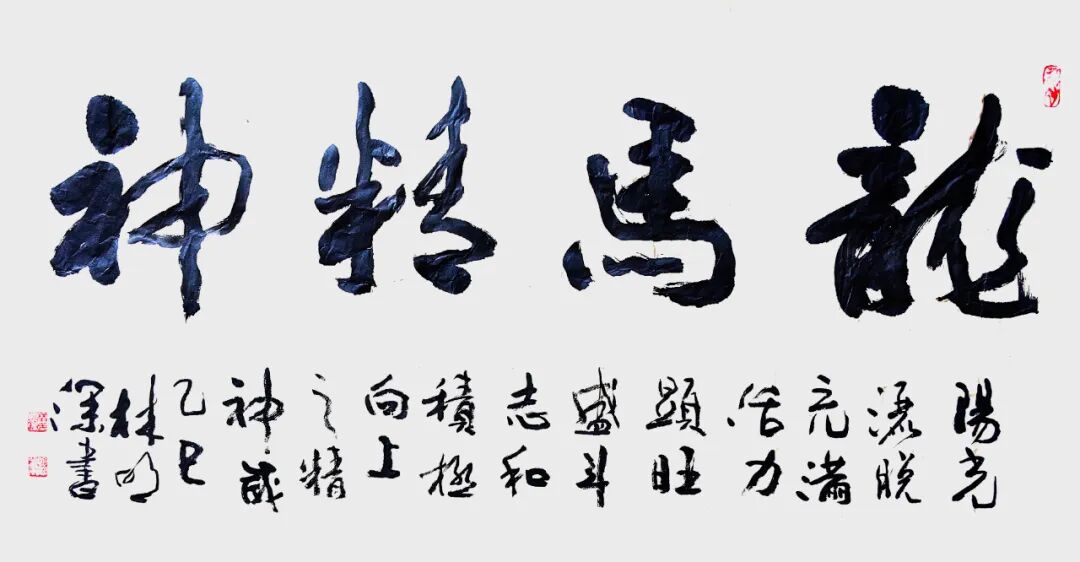 龍馬精神
陽光
灑脫
充滿
活力
顯旺
盛斗
志和
積極
向上
之精
神歲
乙巳
林明
深書